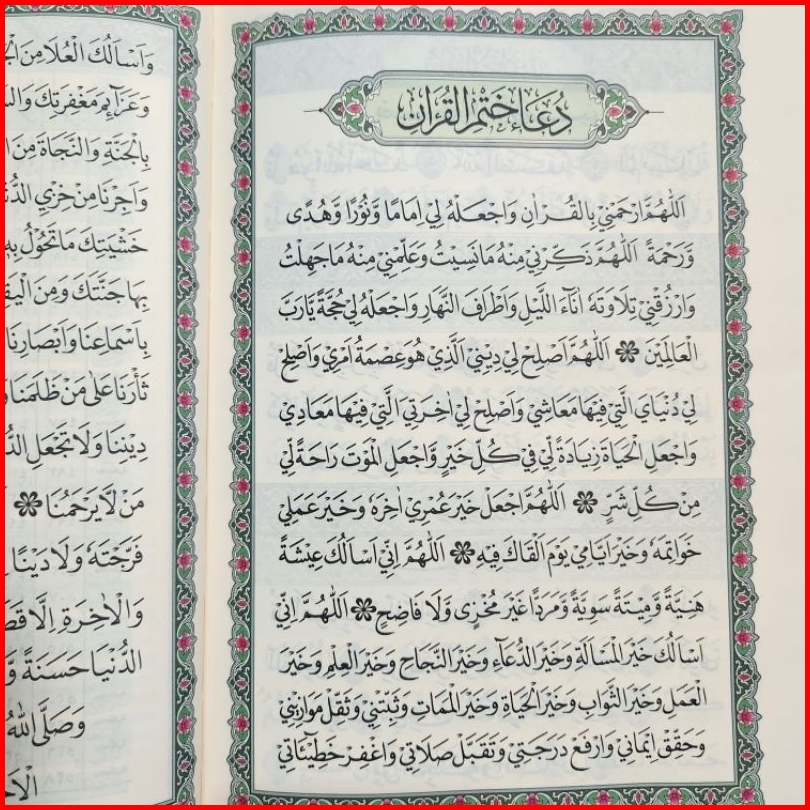 دُعَاءُ خَتْمِ الْقُرْاٰنِ
اَللّٰهُمَّ ارْحَمْنِيْ بِالْقُرْاٰنِ وَاجْعَلْهُ لِيْ اِمَامًا وَّنُوْرًا وَّهُدًى
وَّرَحْمَةً اَللّٰهُمَّ ذَكِّرْنِيْ مِنْهُ مَا نَسِيْتُ وَعَلِّمْنِيْ مِنْهُ مَا جَهِلْتُ
وَارْزُقْنِيْ تِلَاوَتَهٗ اٰنَاءَ اللَّيْلِ وَاَطْرَافَ النَّهَارِ وَاجْعَلْهُ لِيْ حُجَّةً يَّارَبَّ
الْعَالَمِيْنَ ۞ اَللّٰهُمَّ اَصْلِحْ لِيْ دِيْنِيْ الَّذِيْ هُوَ عِصْمَةُ اَمْرِيْ وَاَصْلِحْ
لِيْ دُنْيَايَ الَّتِيْ فِيْهَا مَعَاشِيْ وَاَصْلِحْ لِيْ اٰخِرَتِيْ الَّتِيْ فِيْهَا مَعَادِيْ
وَاجْعَلِ الْحَيَاةَ زِيَادَةً لِّيْ فِيْ كُلِّ خَيْرٍ وَّاجْعَلِ الْمَوْتَ رَاحَةً لِّيْ
مِنْ كُلِّ شَرٍّ ۞ اَللّٰهُمَّ اجْعَلْ خَيْرَ عُمْرِيْ اٰخِرَهٗ وَخَيْرَ عَمَلِيْ
خَوَاتِمَهٗ وَخَيْرَ اَيَّامِيْ يَوْمَ اَلْقَاكَ فِيْهِ ۞ اَللّٰهُمَّ اِنِّيْ اَسْاَلُكَ عِيْشَةً
هَنِيَّةً وَّمِيْتَةً سَوِيَّةً وَّمَرَدًّا غَيْرَ مُخْزِى وَّلَا فَاضِحٍ ۞ اَللّٰهُمَّ اِنِّيْ
اَسْاَلُكَ خَيْرَ الْمَسْاَلَةِ وَخَيْرَ الدُّعَاءِ وَخَيْرَ النَّجَاحِ وَخَيْرَ الْعِلْمِ وَخَيْرَ
الْعَمَلِ وَخَيْرَ الثَّوَابِ وَخَيْرَ الْحَيَاةِ وَخَيْرَ الْمَمَاتِ وَثَبِّتْنِيْ وَثَقِّلْ مَوَازِيْنِيْ
وَحَقِّقْ اِيْمَانِيْ وَارْفَعْ دَرَجَتِيْ وَتَقَبَّلْ صَلَاتِيْ وَاغْفِرْ خَطِيْئَاتِيْ
وَاَسْاَلُكَ الْعُلَا مِنَ
وَعَزَائِمَ مَغْفِرَتِكَ
بِالْجَنَّةِ وَالنَّجَاةَ مِنَ
وَاَجِرْنَا مِنْ خِزْيِ
خَشْيَتِكَ مَا تَحُوْلُ بِهٖ
بِهَا جَنَّتَكَ وَمِنَ
بِاَسْمَاعِنَا وَاَبْصَارِنَا
ثَأْرَنَا عَلٰى مَنْ ظَلَمَنَا
دِيْنِنَا وَلَا تَجْعَلِ
مَنْ لَّا يَرْحَمُنَا ۞
فَرَّجْتَهٗ وَلَا دَيْنًا
وَالْاٰخِرَةِ اِلَّا
الدُّنْيَا حَسَنَةً
وَصَلَّى اللّٰهُ